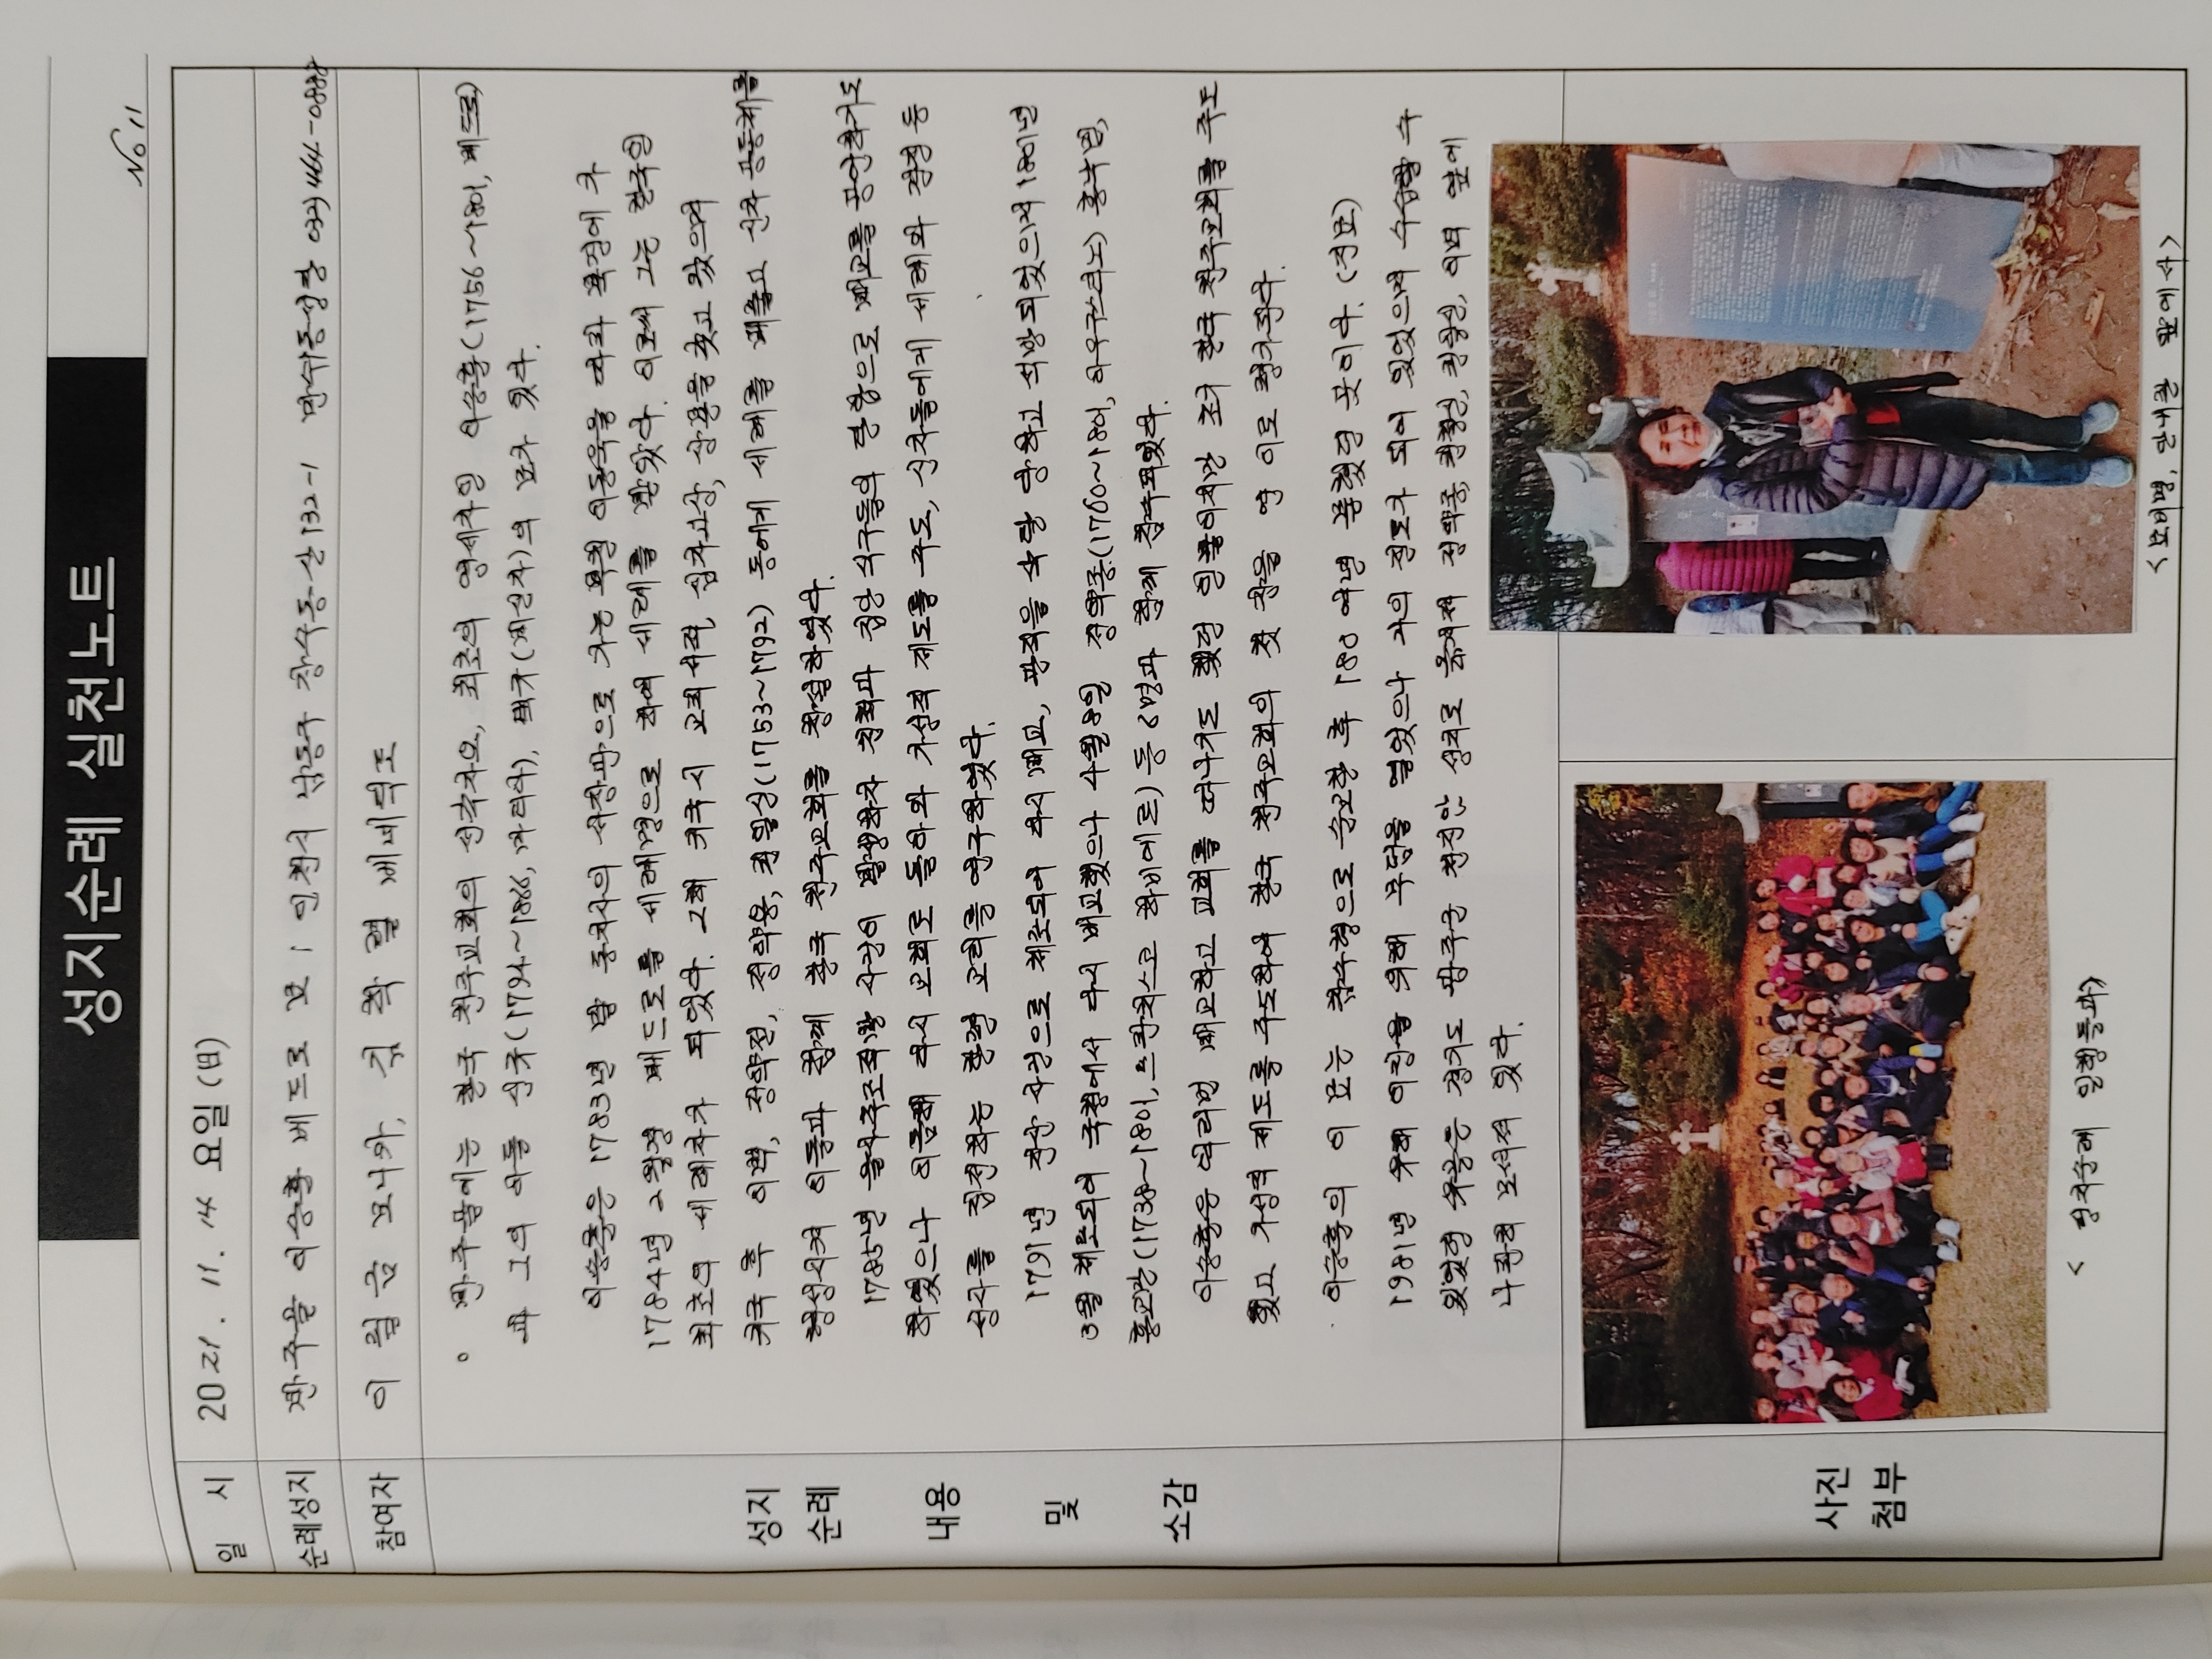 성지순례 실천노트
No 11
일 시 2021. 11. 14 요일(日)
순례성지 반주골 이승훈 베드로 묘 / 인천시 남동구 장수동 산 132-1 만수동성당
참여자 이 필 금 모니카, 최 학 렬 베네딕도
성지 순례 내용 및 소감
반주골에는 한국 천주교회의 선각자요, 최초의 영세자인 이승훈(1756~1801, 베드로)
과 그의 아들 신규(1794~1868, 마티아), 택규(비신자)의 묘가 있다.
이승훈은 1783년 말 동지사의 서장관으로 가는 부친 이동욱을 따라 북경에 가
1784년 2월경 베드로를 세례명으로 하여 세례를 받았다. 이로써 그는 한국인
최초의 세례자가 되었다. 그해 귀국시 교회서적, 십자고상, 상본을 갖고 왔으며
귀국 후 이벽, 정약전, 정약용, 권일신(1753~1792) 등에게 세례를 베풀고 신자 공동체를
형성시켜 이들과 함께 한국 천주교회를 창설하였다.
1785년 을사추조적발 사건이 발생하자 친척과 집안 식구들의 탄압으로 배교를 공언하기도
하였으나 이듬해 다시 교회로 돌아와 가성직 제도를 주도, 신자들에게 세례와 견진 등
성사를 집전하는 한편 교리를 연구하였다.
1791년 진산 사건으로 체포되어 다시 배교, 관직을 삭탈 당하고 석방 되었으며 1801년
3월 체포되어 국청에서 다시 배교했으나 4월 8일 정약종(1760~1801, 아우구스티노) 홍낙민,
홍교만(1738~1801, 프란치스코 하비에르) 등 6명과 함께 참수되었다.
이승훈은 여러번 배교하고 교회를 떠나기도 했던 인물이지만 초기 한국 천주교회를 주도
했고 가성직 제도를 주도하여 한국 천주교회의 첫 장을 연 이로 평가된다.
이승훈의 이 묘는 참수형으로 순교한 후 180 여년 묻혔던 곳이다. (진묘)
1981년 유해 이장을 위해 무덤을 열었으나 거의 진토가 되어 있었으며 수습할 수
있었던 유골은 경기도 광주군 천진암 성지로 옮겨져 정약종, 권철신, 권일신, 이벽 옆에
나란히 모셔져 있다.
사진 첨부
< 성지순례 일행들과>
<묘비명, 안내판 앞에서>